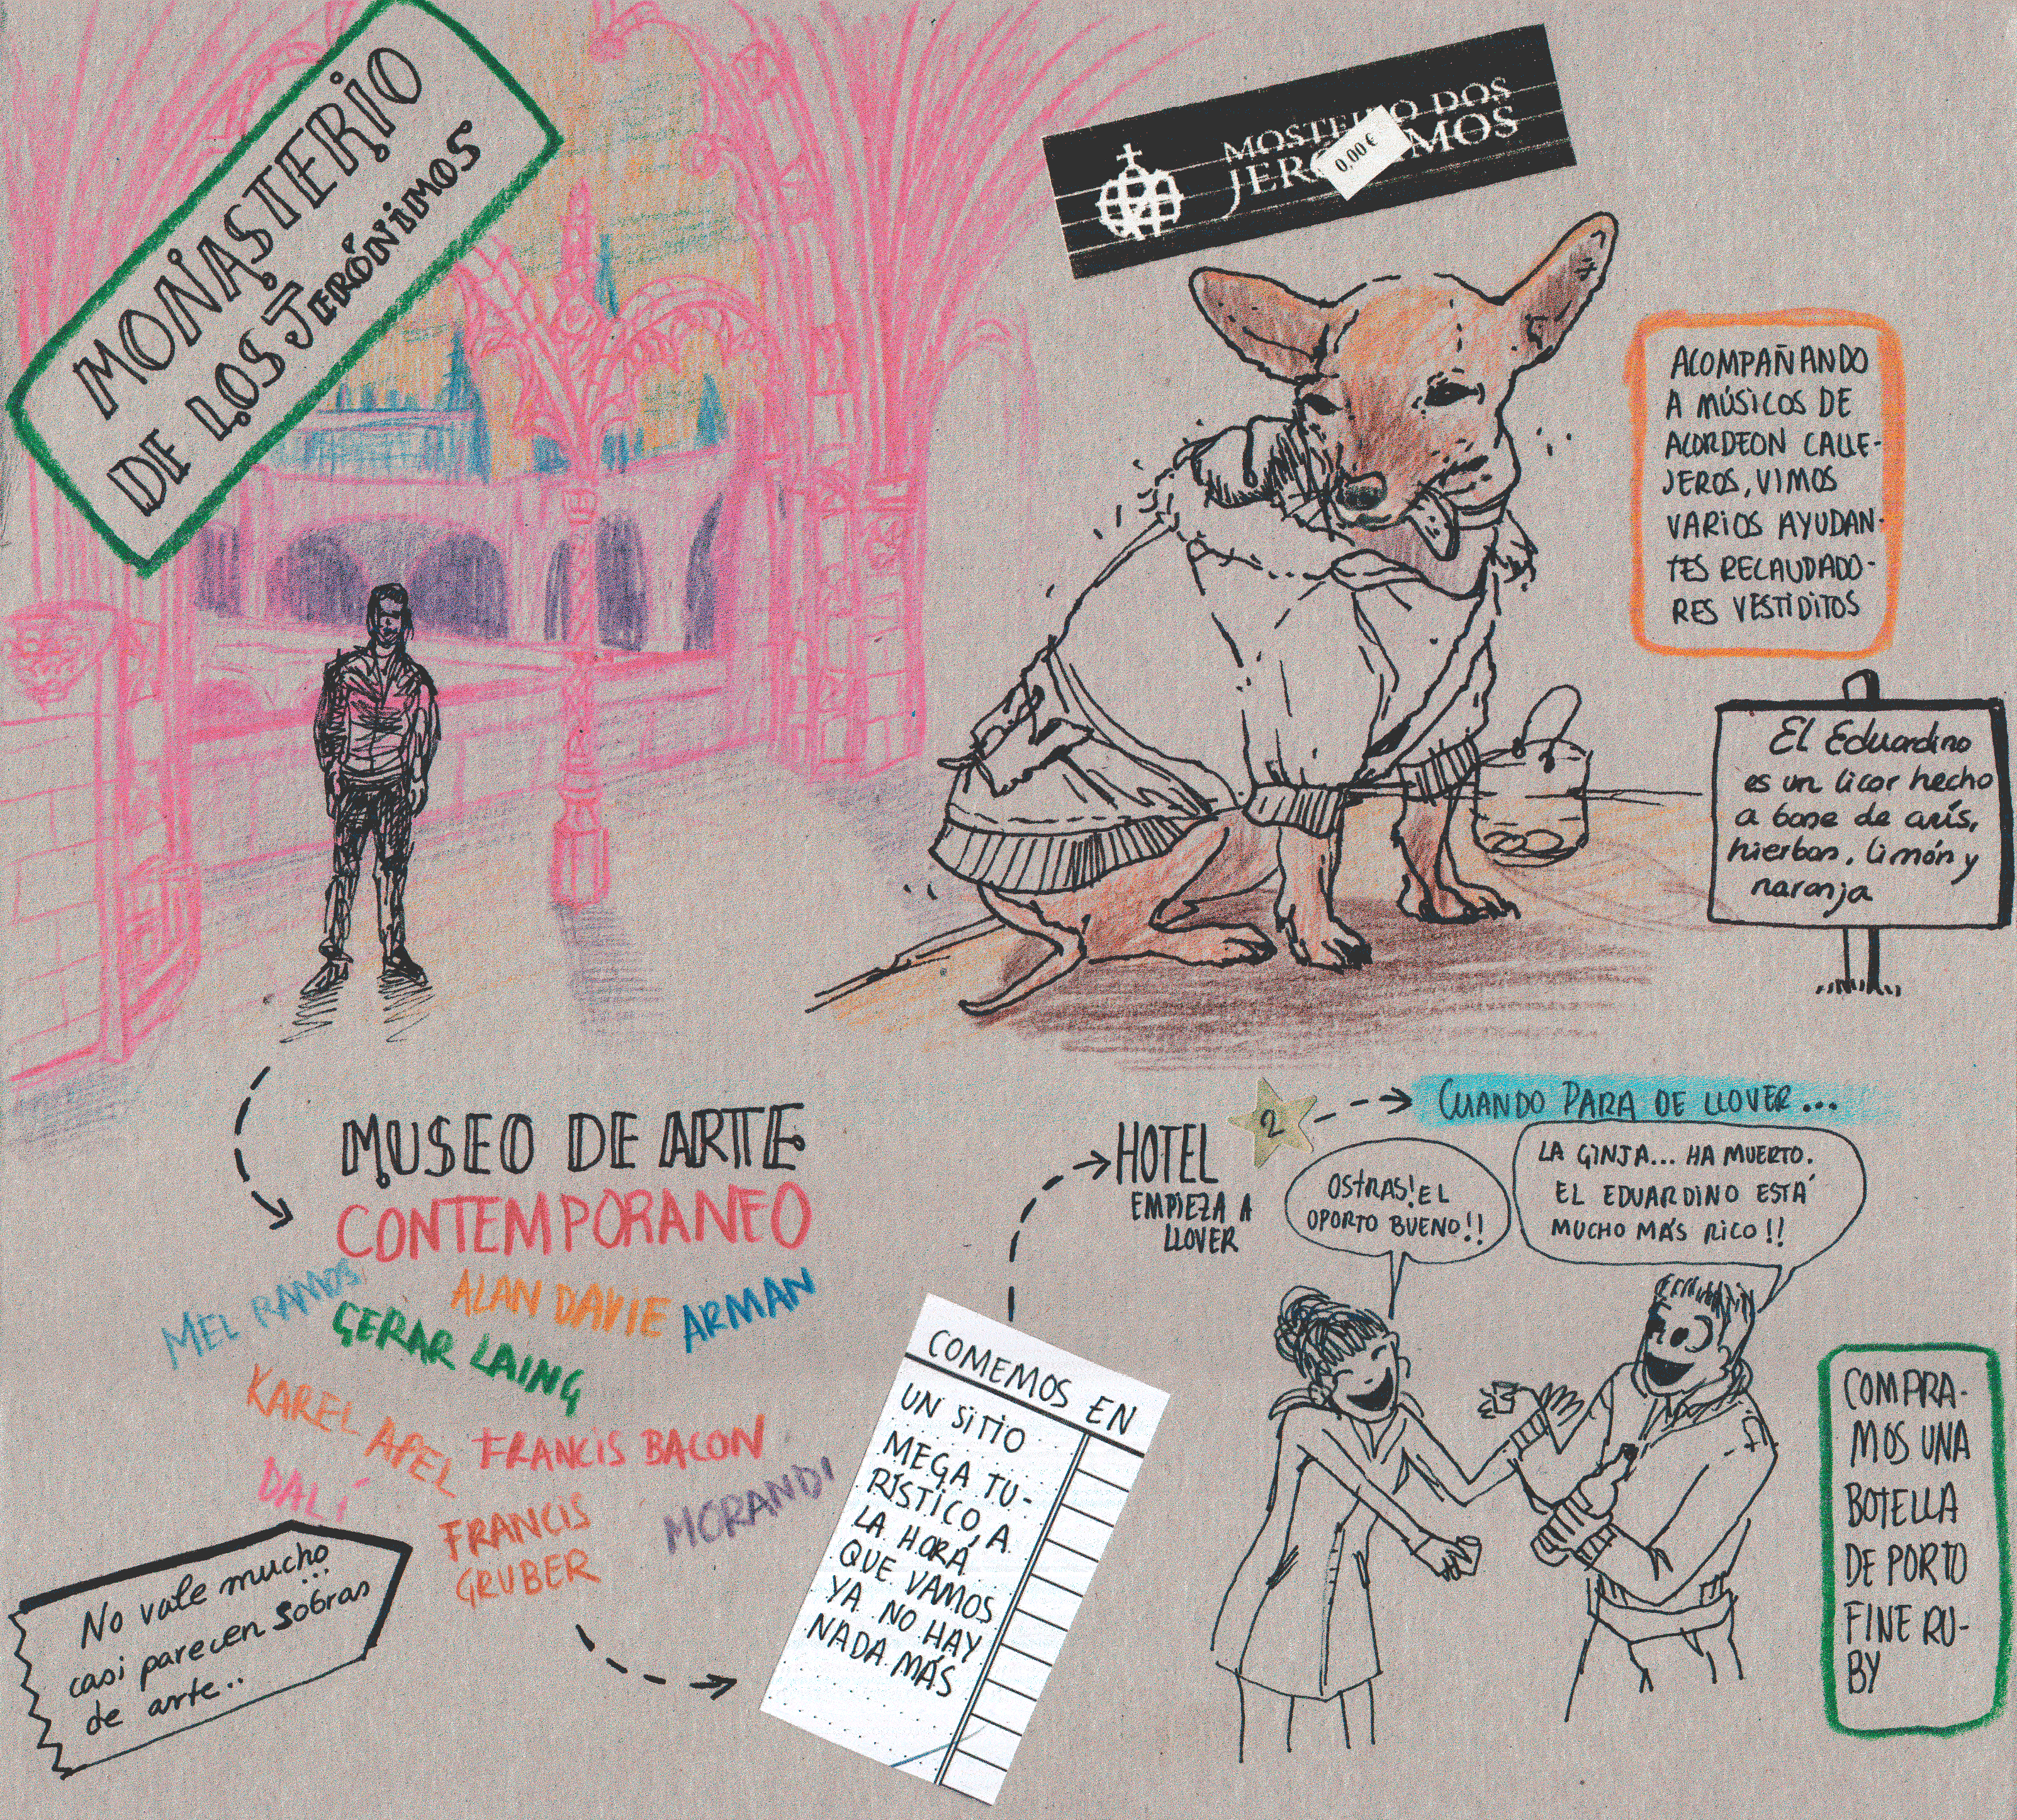 MONASTERIO
DE LOS JERÓNIMOS
MOSTEIRO DOS
JERÓNIMOS
0,00 €
ACOMPAÑANDO
A MÚSICOS DE
ACORDEON CALLE-
JEROS, VIMOS
VARIOS AYUDAN-
TES RECAUDADO-
RES VESTIDITOS
El Eduardino
es un licor hecho
a base de anís,
hierbas, limón y
naranja
MUSEO DE ARTE
CONTEMPORANEO
MEL RAMOS
ALAN DAVIE
ARMAN
GERAR LAING
KAREL APEL
FRANCIS BACON
DALÍ
FRANCIS
GRUBER
MORANDI
No vale mucho...
casi parecen sobras
de arte..
COMEMOS EN
UN SITIO
MEGA TU-
RÍSTICO, A
LA HORA
QUE VAMOS
YA NO HAY
NADA MÁS
HOTEL
2
EMPIEZA A
LLOVER
CUANDO PARA DE LLOVER...
OSTRAS! EL
OPORTO BUENO!!
LA GINJA... HA MUERTO.
EL EDUARDINO ESTÁ
MUCHO MÁS RICO!!
COMPRA-
MOS UNA
BOTELLA
DE PORTO
FINE RU-
BY